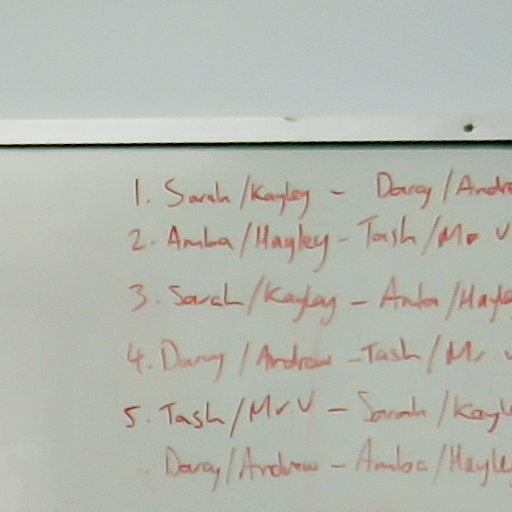 1. Sarah/Kayley - Darcy/Andre
2. Amba/Hayley - Tash/Mr V
3. Sarah/Kayley - Amba/Hayle
4. Darcy/Andrew - Tash/Mr. V
5. Tash/Mr.V - Sarah/Kayl
Darcy/Andrew - Amba/Hayle